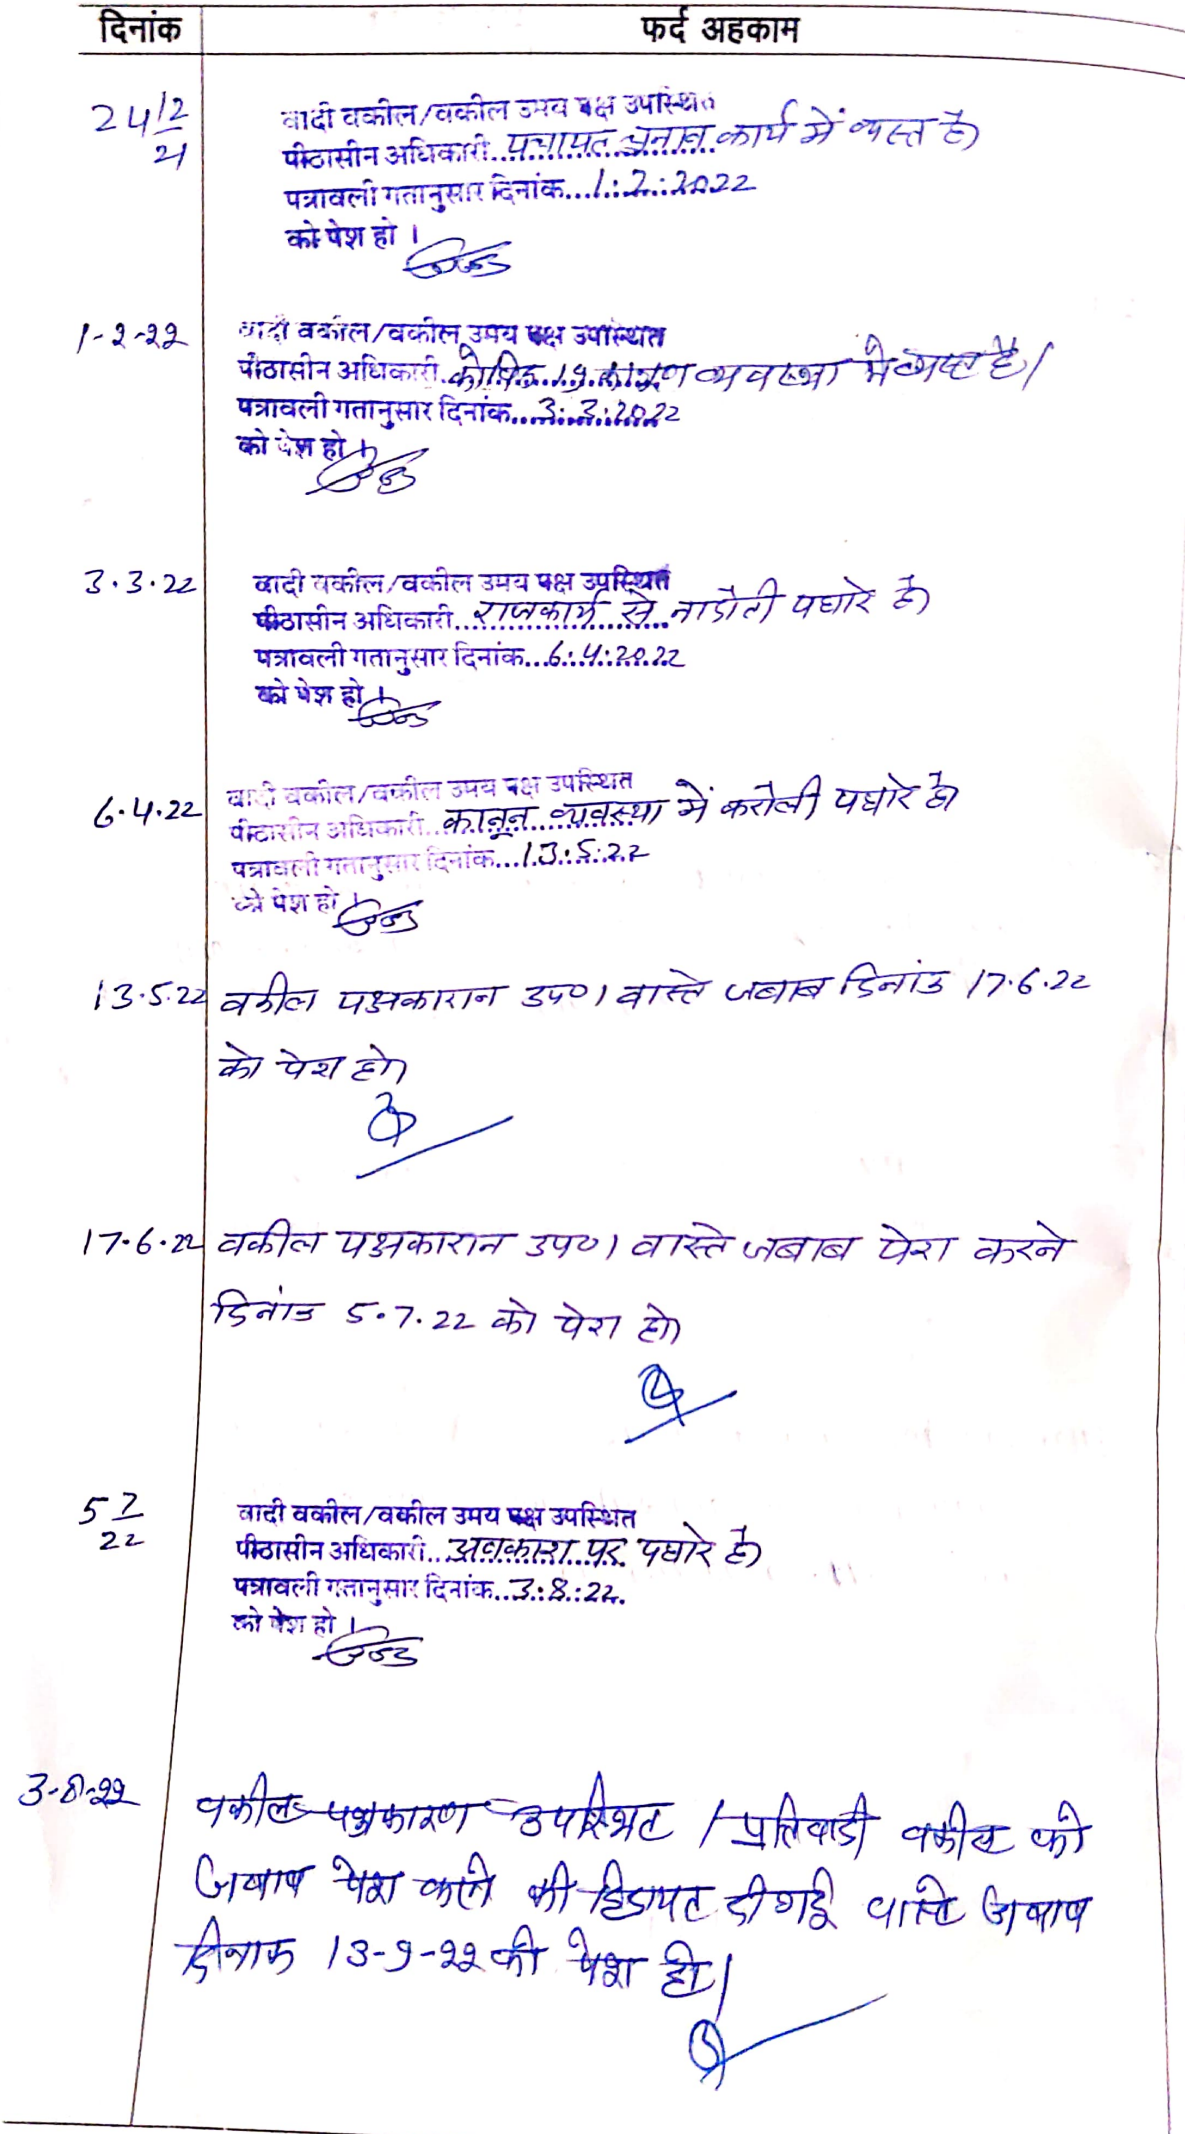 दिनांक फर्द अहकाम
24/12/21 वादी वकील/वकील उभय पक्ष उपस्थित
पीठासीन अधिकारी..पंचायत चुनाव कार्य में व्यस्त है।
पत्रावली गतानुसार दिनांक...1.2.2022
को पेश हो ।
1-2-22 वादी वकील/वकील उभय पक्ष उपस्थित
पीठासीन अधिकारी.कोविड 19 व्यवस्था में व्यस्त है।
पत्रावली गतानुसार दिनांक...3.3.2022
को पेश हो ।
3.3.22 वादी वकील/वकील उभय पक्ष उपस्थित
पीठासीन अधिकारी..राजकार्य से नादौती पधारे है।
पत्रावली गतानुसार दिनांक...6.4.2022
को पेश हो ।
6.4.22 वादी वकील/वकील उभय पक्ष उपस्थित
पीठासीन अधिकारी..कानून व्यवस्था में करौली पधारे है।
पत्रावली गतानुसार दिनांक...13.5.22
को पेश हो ।
13.5.22 वकील पक्षकारान उप०। वास्ते जबाब दिनांक 17.6.22
को पेश हो।
17.6.22 वकील पक्षकारान उप०। वास्ते जबाब पेश करने
दिनांक 5.7.22 को पेश हो।
5 7/22 वादी वकील/वकील उभय पक्ष उपस्थित
पीठासीन अधिकारी..अवकाश पर पधारे है।
पत्रावली गतानुसार दिनांक..3.8.22.
को पेश हो ।
3-8-22 वकील पक्षकारण उपस्थित । प्रतिवादी वकील को
जबाब पेश करने की हिदायत दी गई वास्ते जबाब
दिनांक 13-9-22 को पेश हो।